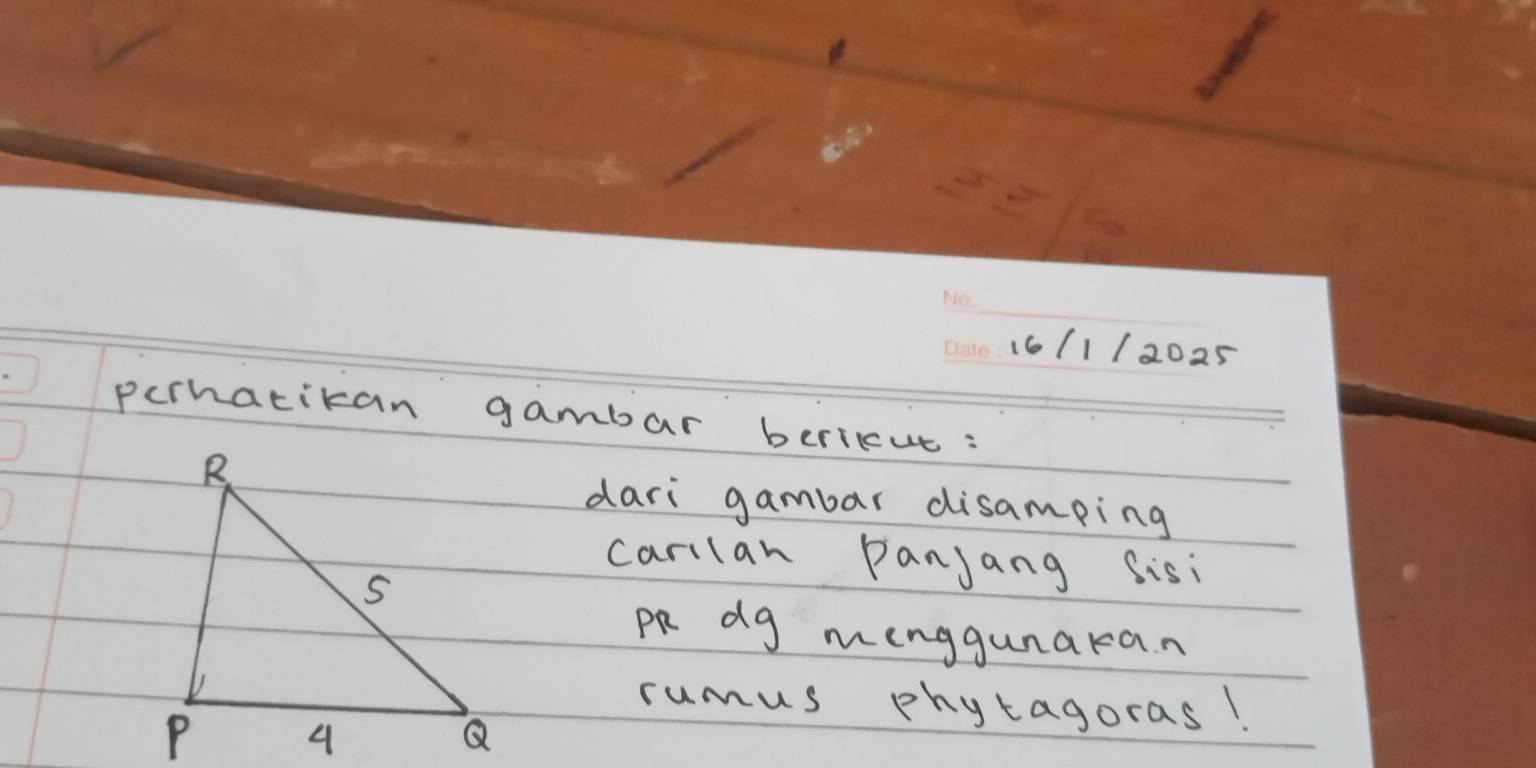 No.
Date : 16/1/2025
perhatikan gambar berikut :
R
dari gambar disamping
carilah panjang sisi
5
PR dg menggunakan
rumus phytagoras!
P 4 Q